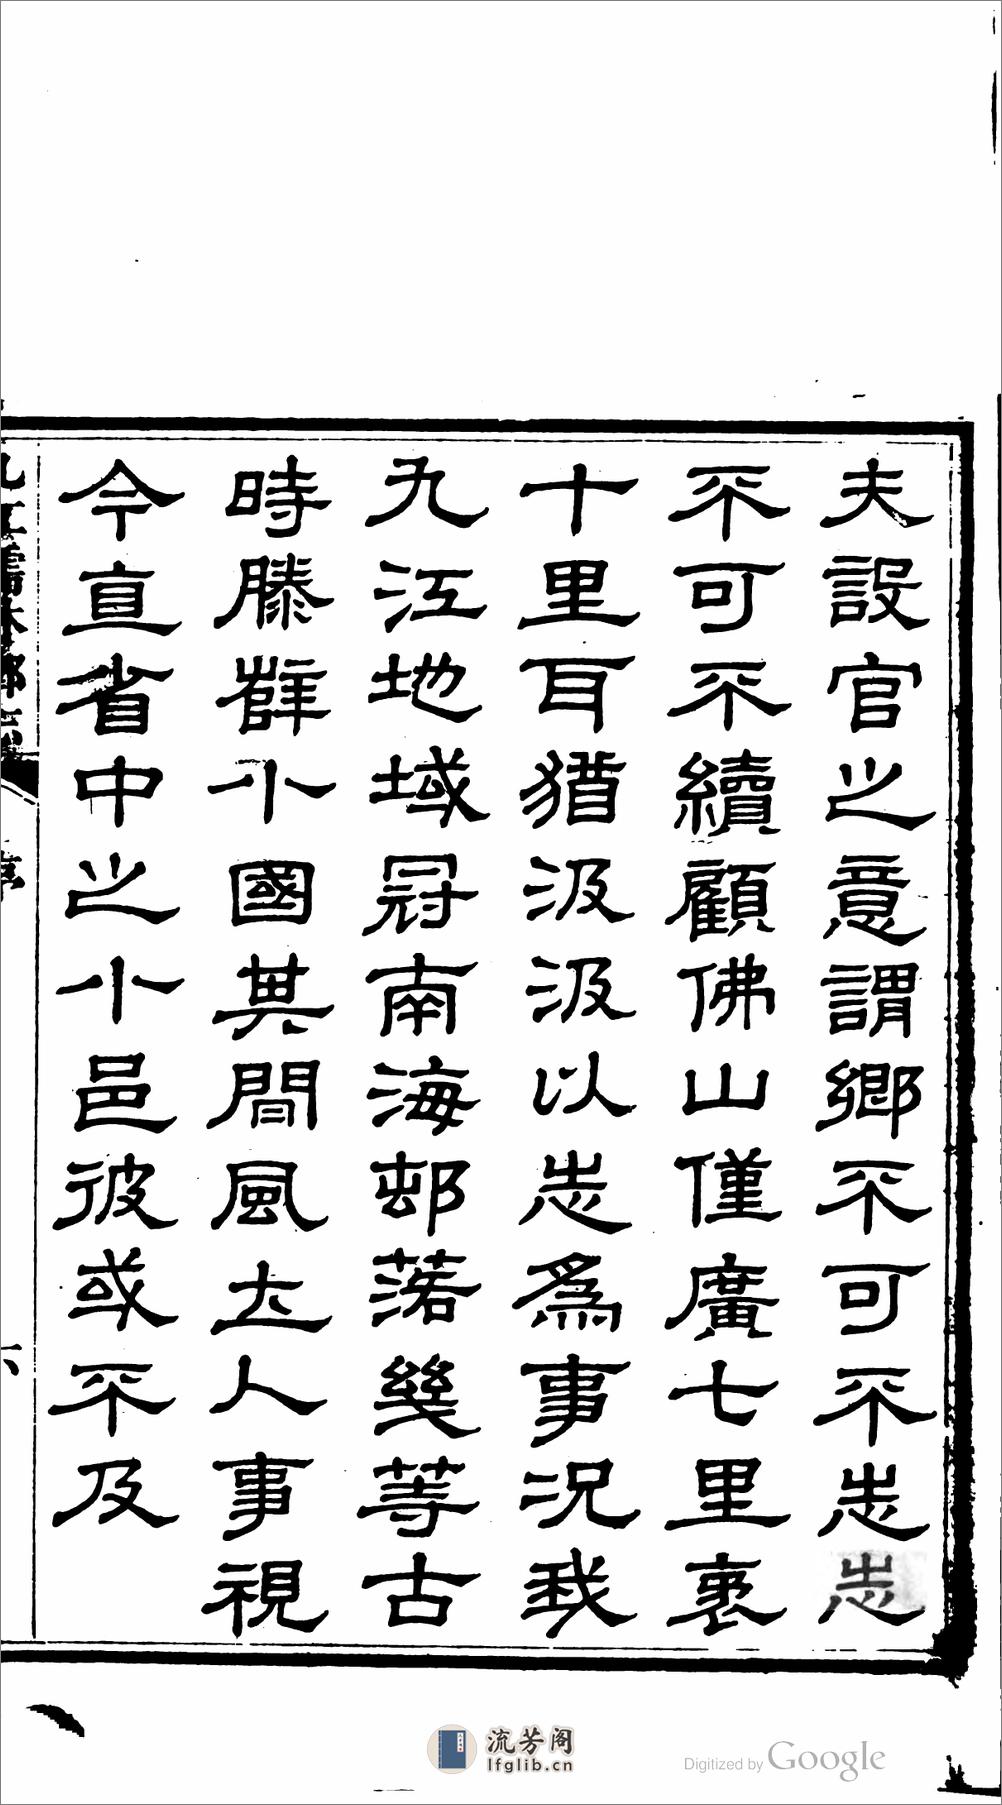 夫設官之意謂鄉不可不志志
不可不續顧佛山僅廣七里袤
十里耳猶汲汲以志為事況我
九江地域冠南海邨落幾等古
時滕薛小國其間風土人事視
今直省中之小邑彼或不及
九江儒林鄉志
序
六
流芳阁
lfglib.cn
Digitized by Google